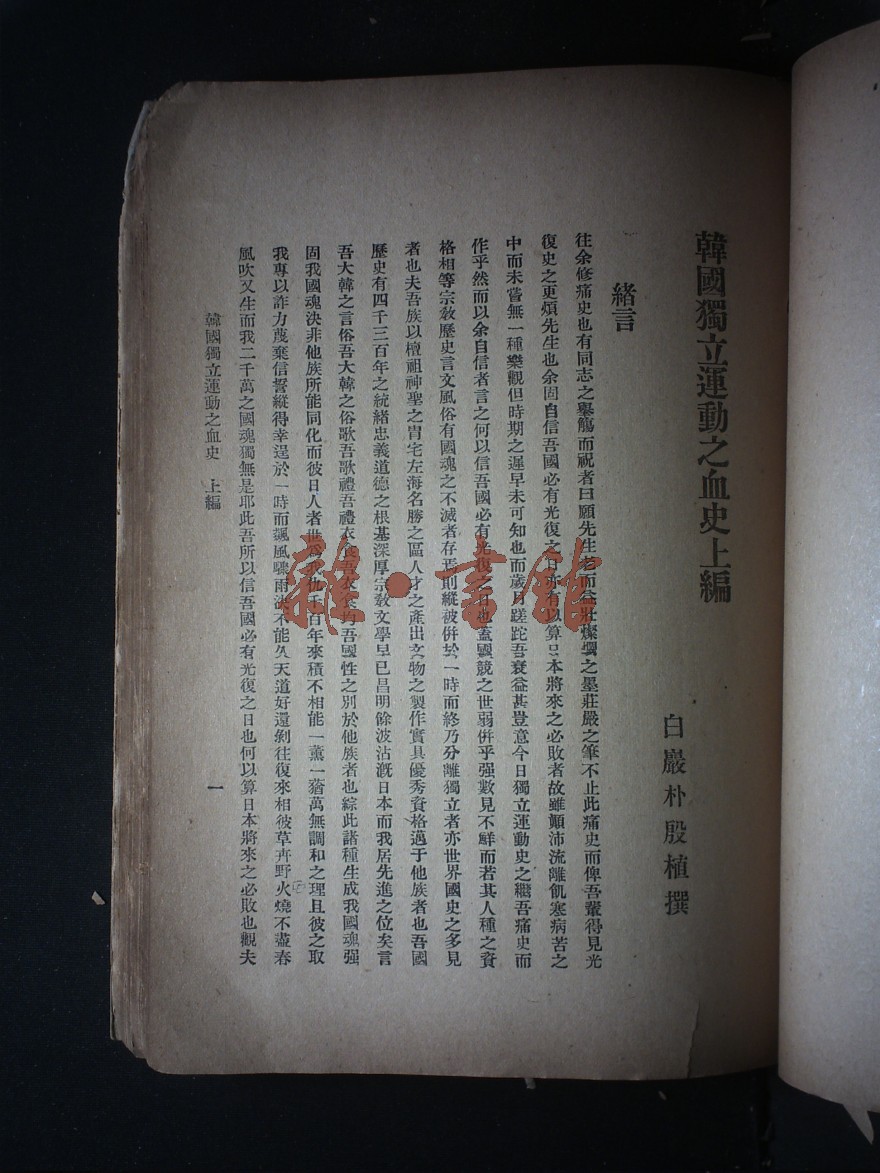 韓國獨立運動之血史上編
白巖朴殷植撰
緒言
往余修痛史也有同志之擧觴而祝者曰願先生老而益壯燦爛之墨莊嚴之筆不止此痛史而俾吾輩得見光
復史之更煩先生也余固自信吾國必有光復之日亦有以算日本將來之必敗者故雖顚沛流離飢寒病苦之
中而未嘗無一種樂觀但時期之遲早未可知也而歲月蹉跎吾衰益甚豈意今日獨立運動史之繼吾痛史而
作乎然而以余自信者言之何以信吾國必有光復之日也蓋國競之世弱併乎强數見不鮮而若其人種之資
格相等宗敎歷史言文風俗有國魂之不滅者存焉則縱被併於一時而終乃分離獨立者亦世界國史之多見
者也夫吾族以檀祖神聖之胄宅左海名勝之區人才之產出文物之製作實具優秀資格邁于他族者也吾國
歷史有四千三百年之統緖忠義道德之根基深厚宗敎文學早已昌明餘波沾漑日本而我居先進之位矣言
吾大韓之言俗吾大韓之俗歌吾歌禮吾禮衣食吾衣食均吾國性之別於他族者也綜此諸種生成我國魂强
固我國魂決非他族所能同化而彼日人者世爲我仇千百年來積不相能一薰一蕕萬無調和之理且彼之取
我專以詐力蔑棄信誓縱得幸逞於一時而飄風驟雨決不能久天道好還剝往復來相彼草卉野火燒不盡春
風吹又生而我二千萬之國魂獨無是耶此吾所以信吾國必有光復之日也何以算日本將來之必敗也觀夫
韓國獨立運動之血史 上編
一
雜·書館